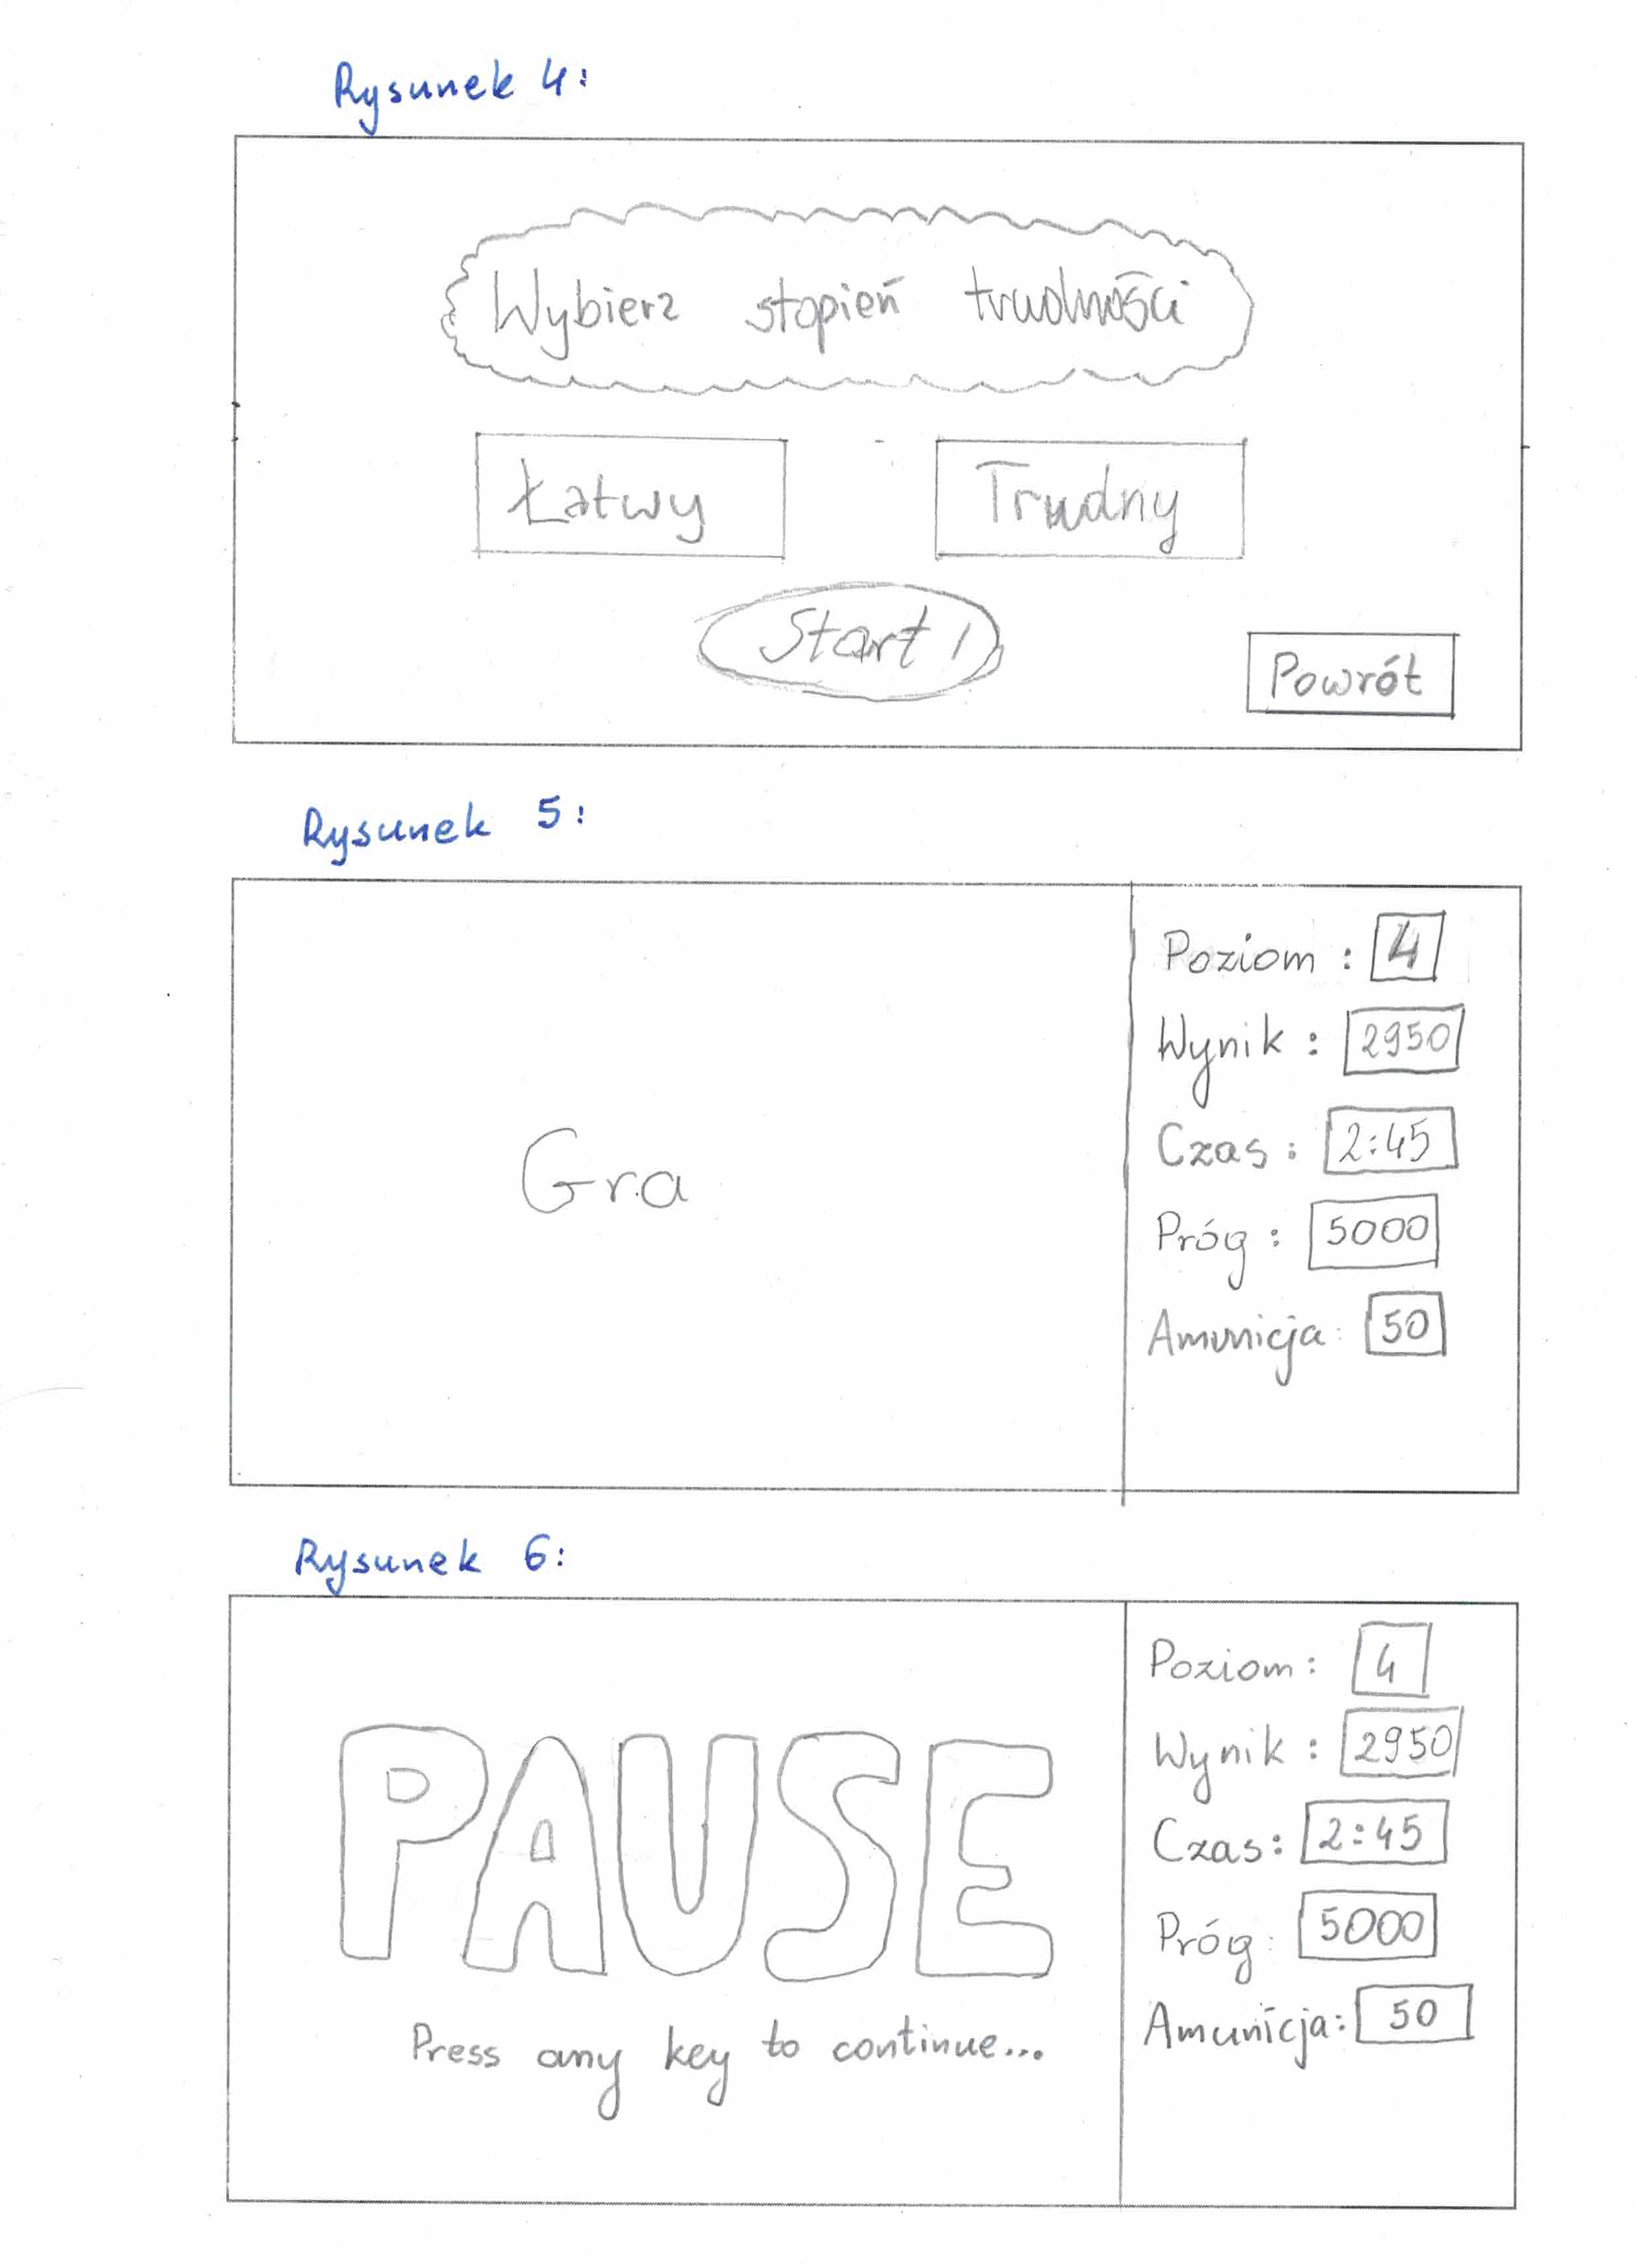 Rysunek 4:
Wybierz stopień trudności
Łatwy Trudny
Start!
Powrót
Rysunek 5:
Gra
Poziom : 4
Wynik : 2950
Czas : 2:45
Próg : 5000
Amunicja: 50
Rysunek 6:
PAUSE
Press any key to continue...
Poziom: 4
Wynik : 2950
Czas: 2:45
Próg: 5000
Amunicja: 50